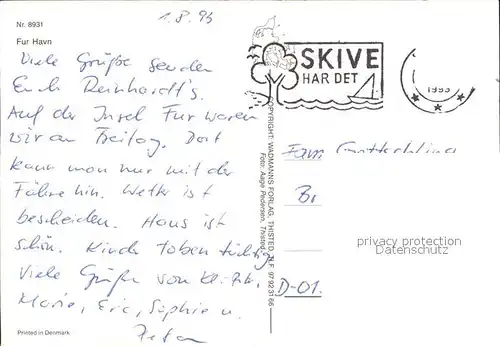 Nr. 8931
1.8.93
Fur Havn
Viele Grüße senden
Euch Reinhardt's.
Auf der Insel Fur waren
wir am Freitag. Dort
kann man nur mit der
Fähre hin. Wetter ist
bescheiden. Haus ist
schön. Kinder toben tüchtig
Viele Grüße von
Marie, Eric, Sophie u.
Peter
Printed in Denmark
SKIVE
HAR DET
1993
COPYRIGHT: WADMANNS FORLAG, THISTED. TLF. 97 92 31 66
Foto: Aage Pedersen, Thisted.
Fam.
Br
privacy protection
Datenschutz
D-01.